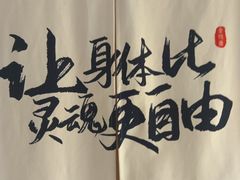 让身体比
灵魂更自由